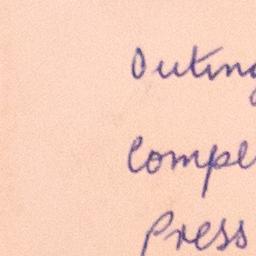 Outing
Compe
Press